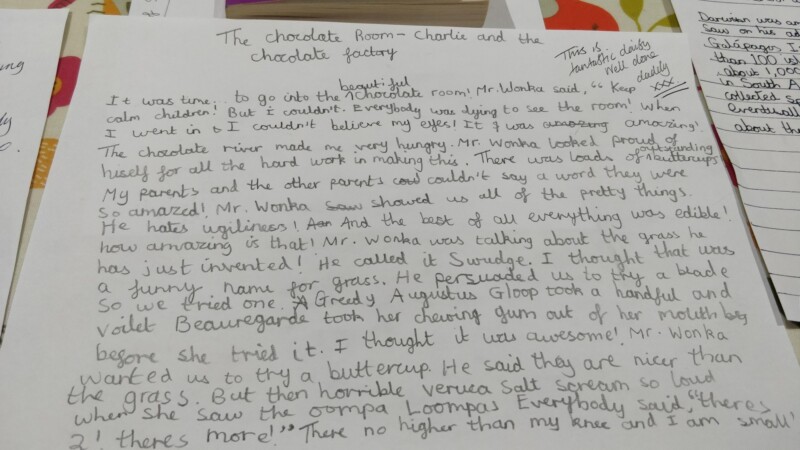 The chocolate Room - Charlie and the
chocolate factory
This is
fantastic daisy
Well done
daddy
xxx
beautiful
It was time... to go into the chocolate room! Mr. Wonka said, "Keep
calm children! But i couldn't. Everybody was dying to see the room! When
I went in I couldn't believe my eyes! It was amazing amazing!
The chocolate river made me very hungry. Mr. Wonka looked proud of
hiself for all the hard work in making this. There was loads of buttercups
My parents and the other parents cow couldn't say a word they were
So amazed! Mr. Wonka saw showed us all of the pretty things.
He hates ugiliness! And the best of all everything was edible!
how amazing is that! Mr. Wonka was talking about the grass he
has just invented! He called it Swudge. I thought that was
a funny name for grass. He persuaded us to try a blade
So we tried one. Greedy Augustus Gloop took a handful and
Voilet Beauregarde took her chewing gum out of her mouth
before she tried it. I thought it was awesome! Mr. Wonka
wanted us to try a buttercup. He said they are nicer than
the grass. But then horrible veruca Salt scream so loud
when she saw the oompa Loompas Everybody said, "theres
2! theres more!" There no higher than my knee and I am small!
Darwin was an
Saw on his ad
Galápagos I
than 100 is
about 1,000
in South A
collected s
eventuall
about th